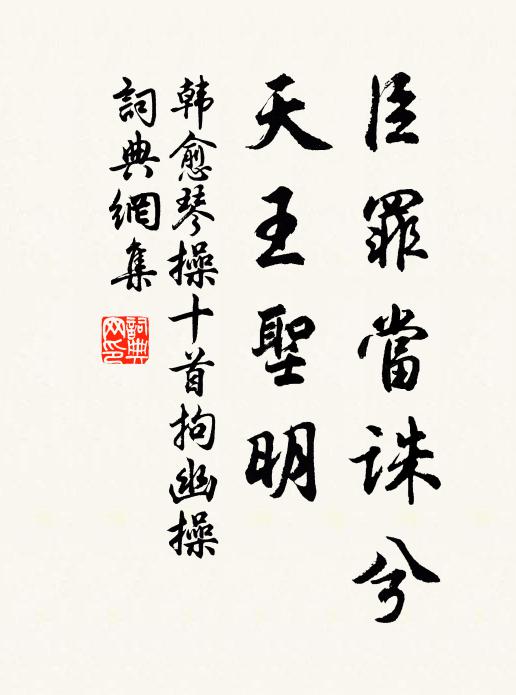 臣罪當誅兮
天王聖明
韩愈琴操十首拘幽操
詞典網集
詞典網印